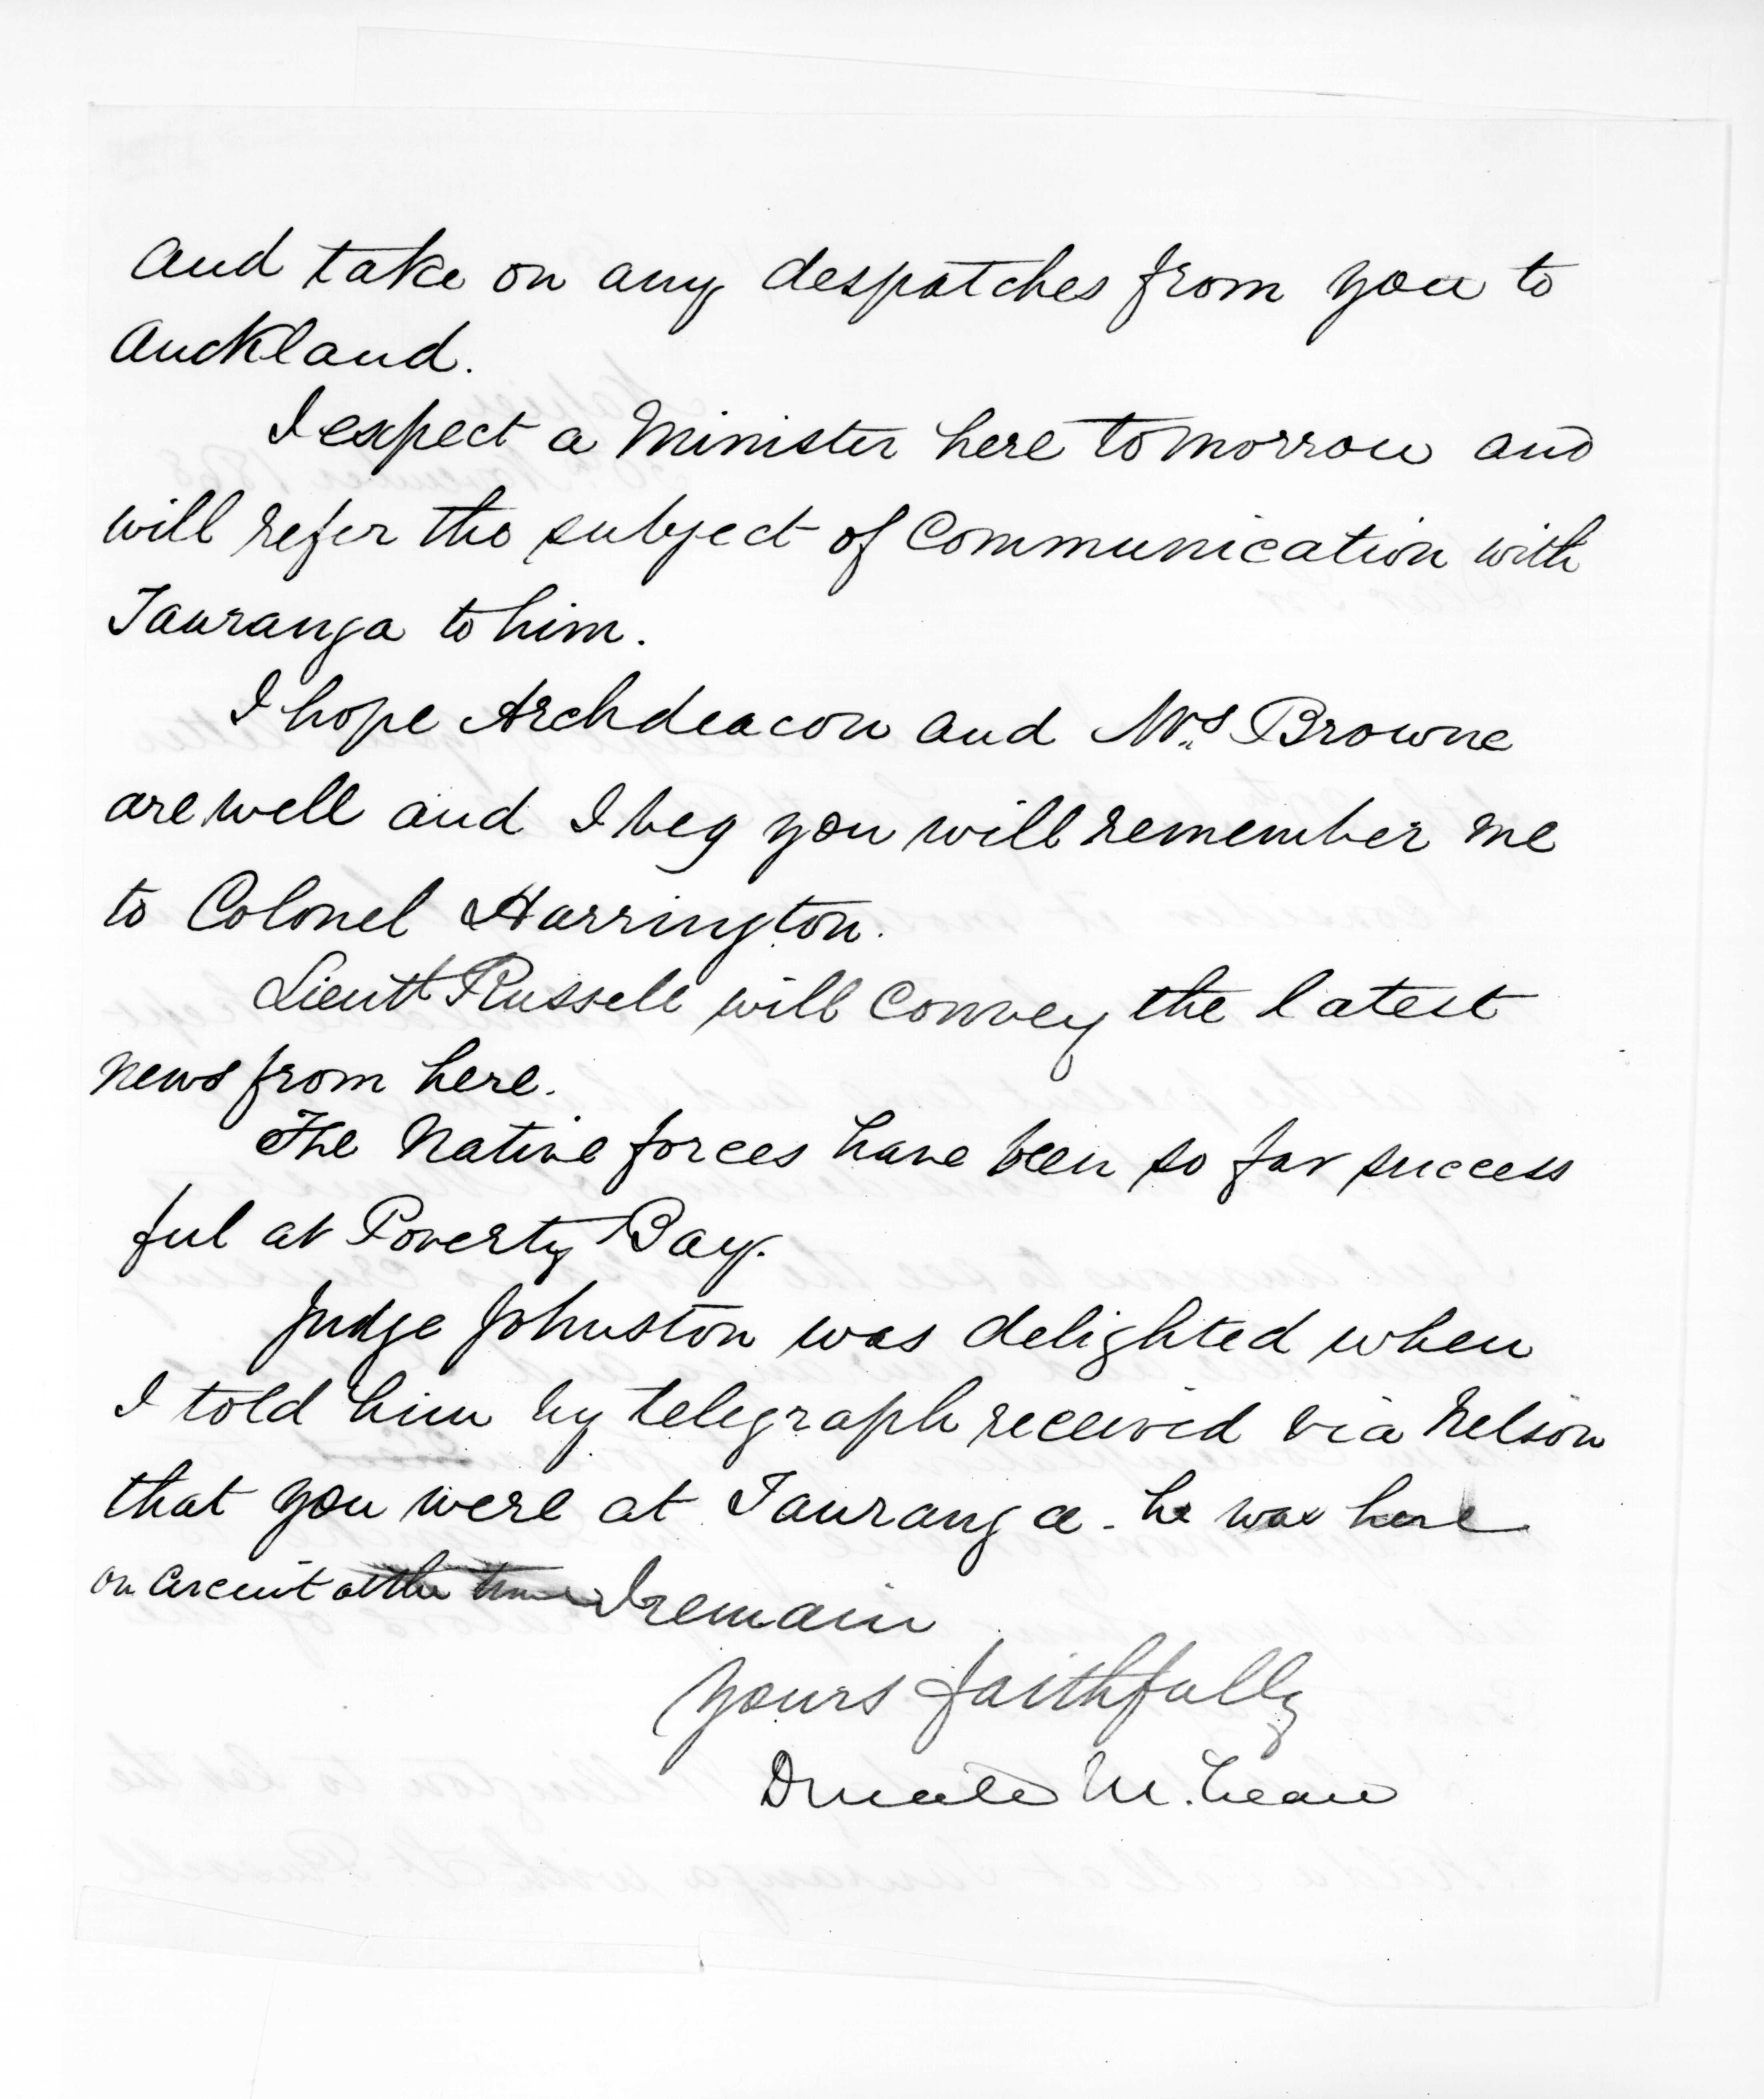 and take on any despatches from you to
Auckland.
I expect a Minister here tomorrow and
will refer the subject of Communication with
Tauranga to him.
I hope Archdeacon and Mrs Browne
are well and I beg you will remember me
to Colonel Harrington.
Lieutt Russell will convey the latest
news from here.
The Native forces have been so far success
ful at Poverty Bay.
Judge Johnston was delighted when
I told him by telegraph received via Nelson
that you were at Tauranga - he was here
on circuit at the time I remain
yours faithfully
Donald McLean